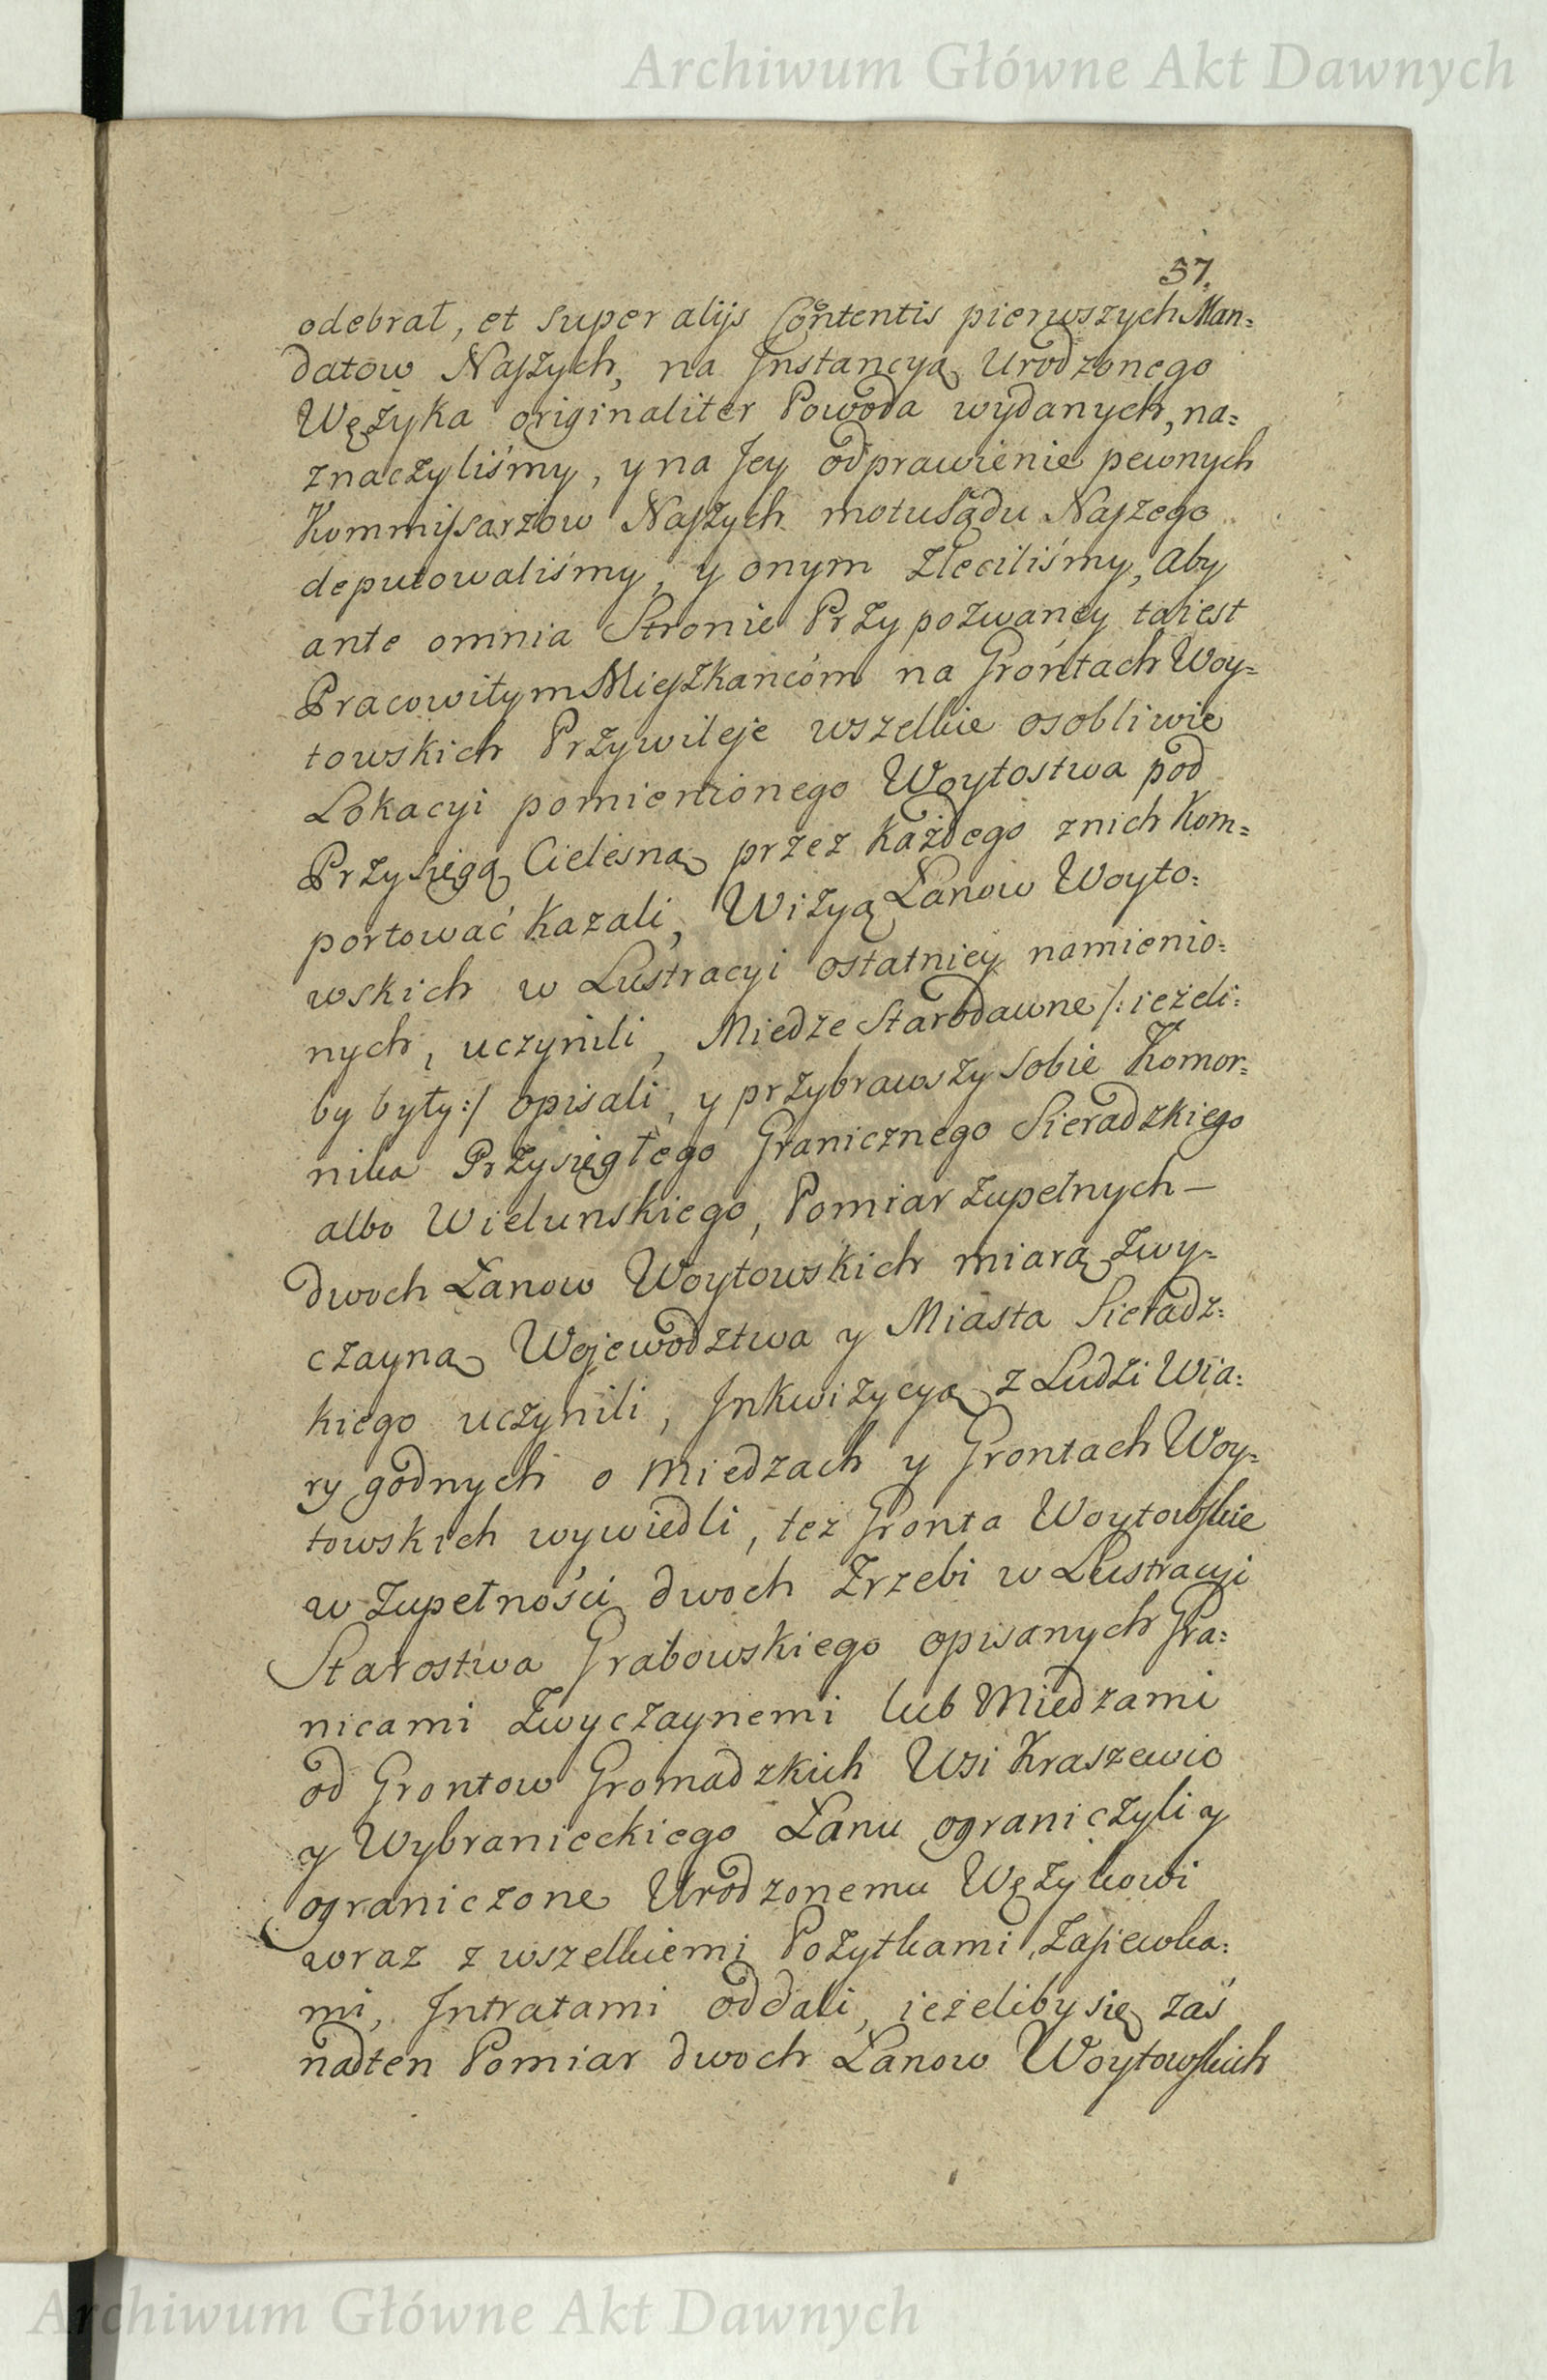 Archiwum Główne Akt Dawnych
57.
odebrał, et super alijs Contentis pierwszych Man=
datow Naszych, na Instancyą Urodzonego
Wężyka originaliter Powoda wydanych, na=
znaczyliśmy, y na Jey odprawienie pewnych
Kommissarzow Naszych motu Sądu Naszego
deputowaliśmy, y onym zleciliśmy, aby
ante omnia Stronie Przypozwaney taiest
Pracowitym Mieszkańcóm na Grontach Woy=
towskich Przywileje wszelkie osobliwie
Lokacyi pomienionego Woytostwa pod
Przysięgą Cielesną przez każdego znich kom=
portować kazali, Wizyą Łanow Woyto=
wskich w Lustracyi ostatniey namienio=
nych, uczynili, Miedze Starodawne /: ieżeli=
by były :/ opisali, y przybrawszy sobie Komor=
nika Przysięgłego Granicznego Sieradzkiego
albo Wielunskiego, Pomiar zupełnych —
dwoch Łanow Woytowskich miarą zwy=
czayną Wojewodztwa y Miasta Sieradz=
kiego uczynili, Inkwizycyą z Ludzi Wia=
ry godnych o Miedzach y Grontach Woy=
towskich wywiedli, też Gronta Woytowskie
w zupełności dwoch Zrzebi w Lustracyi
Starostwa Grabowskiego opisanych Gra=
nicami Zwyczaynemi lub Miedzami
od Grontow Gromadzkich Wsi Kraszewic
y Wybranieckiego Łanu ograniczyli y
ograniczone Urodzonemu Wężykowi
wraz z wszelkiemi Pożytkami, Zasiewka=
mi, Intratami oddali, ieżeliby się zaś
nadten Pomiar dwoch Łanow Woytowskich
Archiwum Główne Akt Dawnych